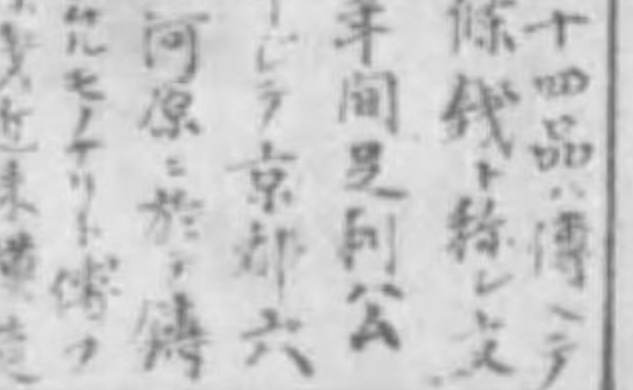 十四品ハ傳ヘテ
條銭ト称シ文
年間足利公
シテ京都六
河原ニ於テ鋳
セルモノナリト傳フ